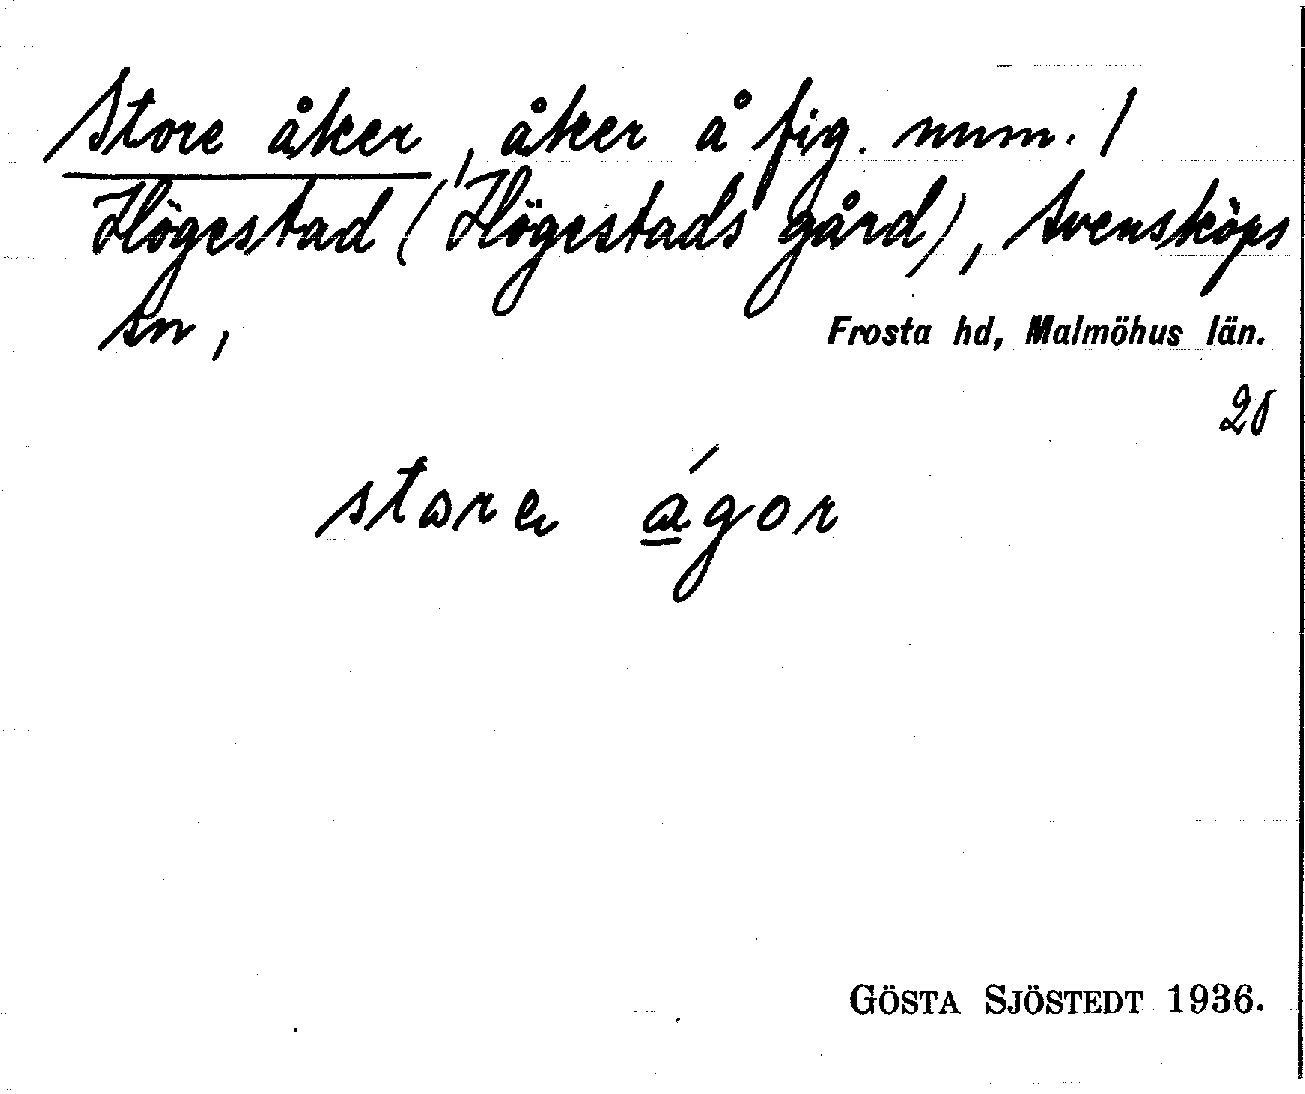 Store åker, åker å fig. num. 1
Högestad (Högestads gård), Svensköps
sn,
Frosta hd, Malmöhus län.
store ágor
GÖSTA SJÖSTEDT 1936.